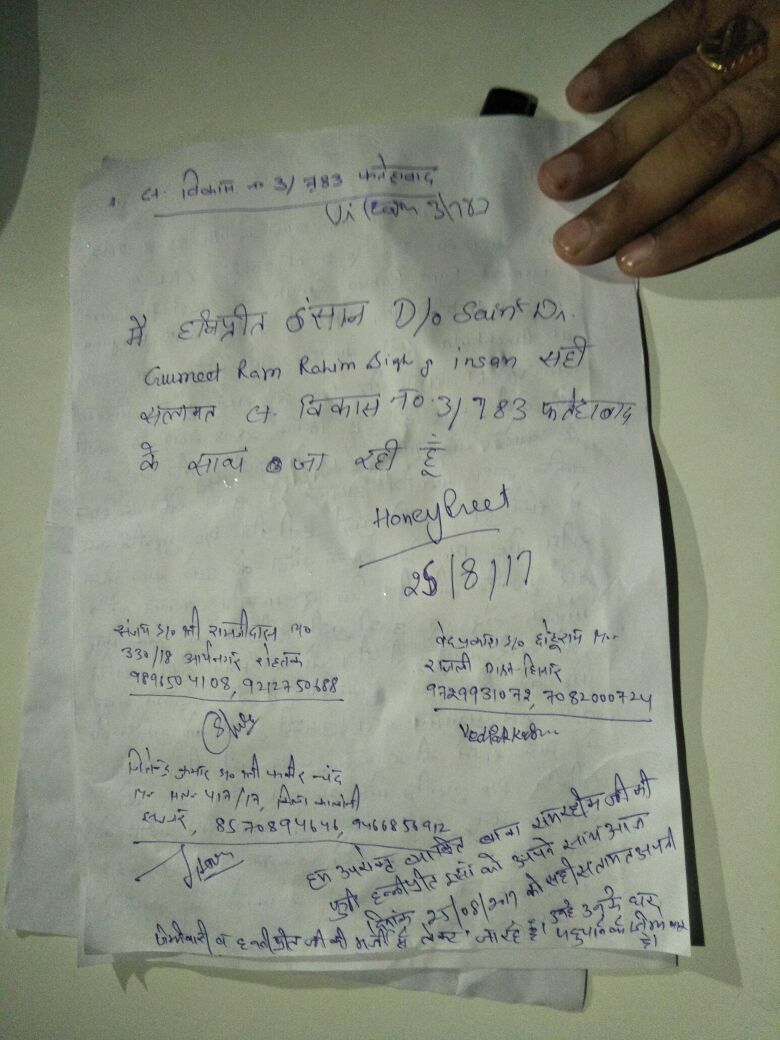 विकास no 3/783 फतेहाबाद
3/783
मैं हनिप्रीत इंसान D/o Saint Dr.
Gurmeet Ram Rahim Singh ji insan सही
सलामत विकास no. 3/783 फतेहाबाद
के साथ जा रही हूँ
HoneyPreet
25/8/17
संजय S/o श्री रामजीदास
330/18 आर्यनगर रोहतक
9896504108, 9212750688
वेदप्रकाश S/o छोटूराम
राजली Distt हिसार
9729931072, 7082000724
VedParkash
जितेन्द्र कुमार S/o श्री फकीर चंद
H.No 417/17,
8570894646, 9466856912
हम उपरोक्त व्यक्ति बाबा राम रहीम जी की
पुत्री हनीप्रीत को अपने साथ आज
दिनांक 25/08/2017 को सही सलामत अपनी
जिम्मेवारी व हनीप्रीत जी की मर्जी से लेकर जा रहे हैं। उनके घर